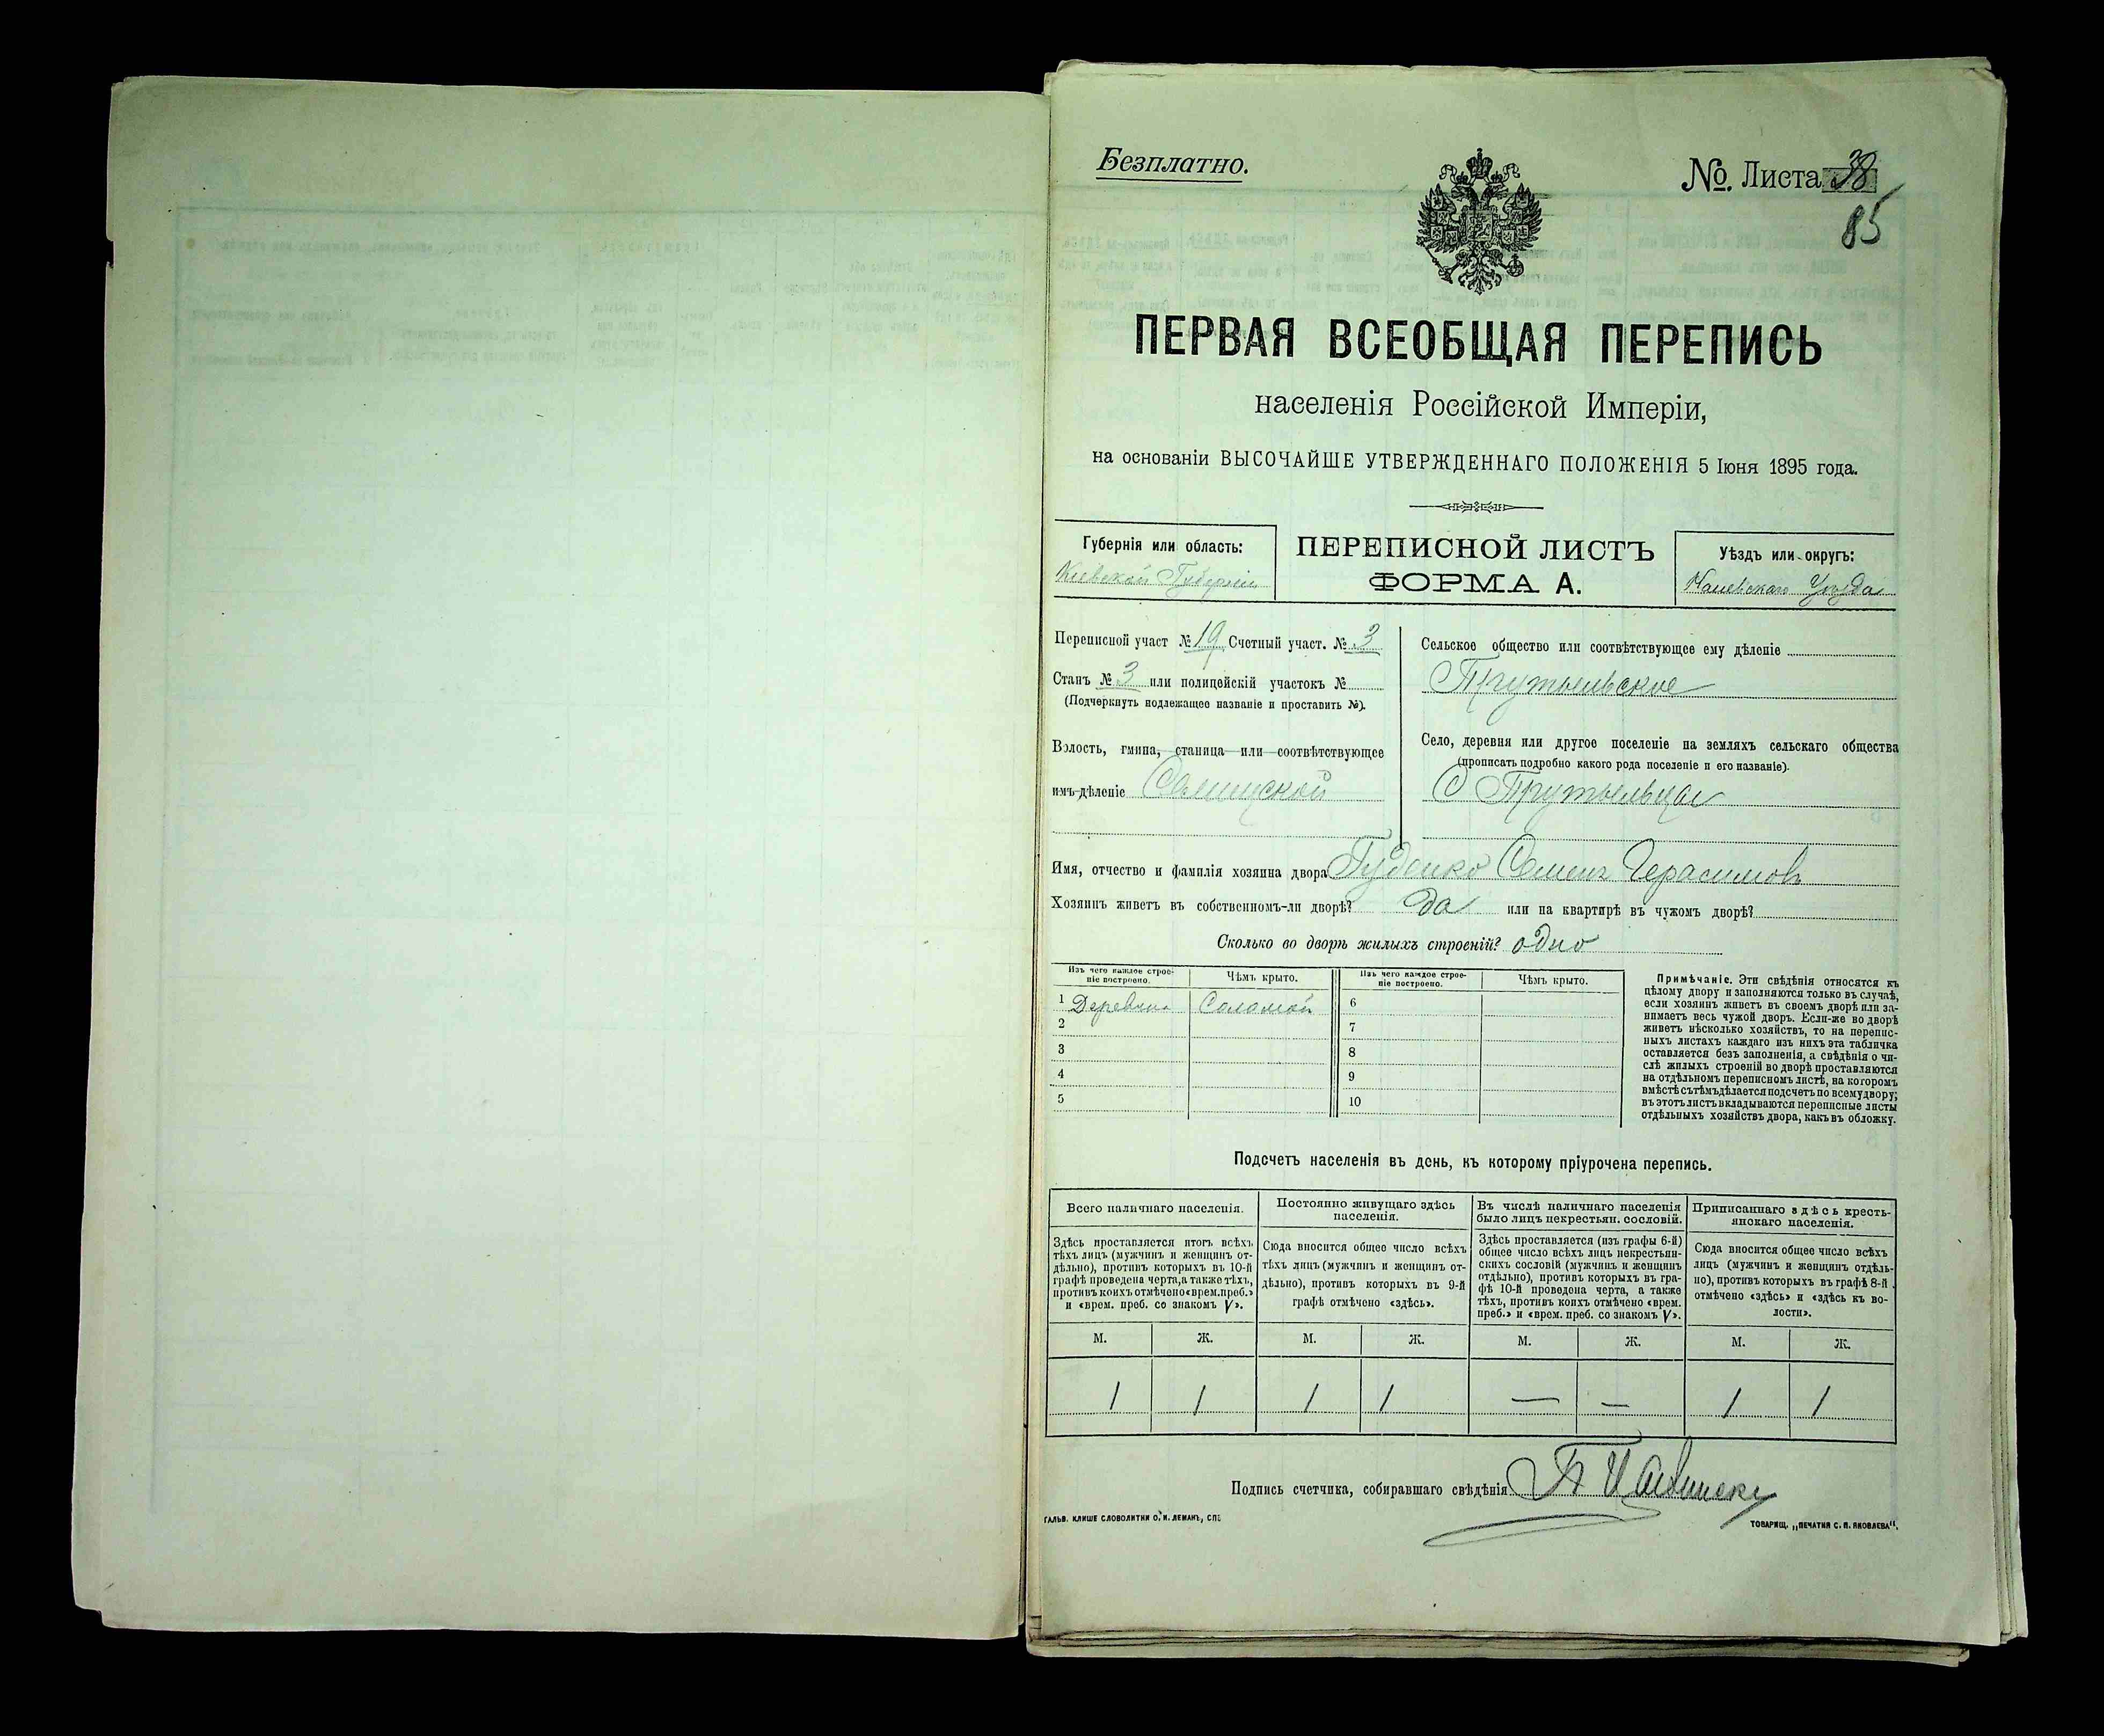 Безплатно.
№. Листа 38
85
ПЕРВАЯ ВСЕОБЩАЯ ПЕРЕПИСЬ
населенія Россійской Имперіи,
на основаніи ВЫСОЧАЙШЕ УТВЕРЖДЕННАГО ПОЛОЖЕНІЯ 5 Іюня 1895 года.
Губернія или область:
Кіевской Губерніи
ПЕРЕПИСНОЙ ЛИСТЪ
ФОРМА А.
Уѣздъ или округъ:
Каневскаго Уѣзда
Переписной участ №19 Счетный участ. № 3
Станъ № 3 или полицейскій участокъ №
(Подчеркнуть подлежащее названіе и проставить №).
Волость, гмина, станица или соотвѣтствующее
имъ дѣленіе
Сельское общество или соотвѣтствующее ему дѣленіе
Село, деревня или другое поселеніе на земляхъ сельскаго общества
(прописать подробно какого рода поселеніе и его названіе).
С
Имя, отчество и фамилія хозяина двора Гуденко Семенъ Герасимовъ
Хозяинъ живетъ въ собственномъ-ли дворѣ? да или на квартирѣ въ чужомъ дворѣ?
Сколько во дворѣ жилыхъ строеній? одно
Изъ чего каждое строе-
ніе построено.
Чѣмъ крыто.
Изъ чего каждое строе-
ніе построено.
Чѣмъ крыто.
1 Соломой 6
2 7
3 8
4 9
5 10
Примѣчаніе. Эти свѣдѣнія относятся къ
цѣлому двору и заполняются только въ случаѣ,
если хозяинъ живетъ въ своемъ дворѣ или за-
нимаетъ весь чужой дворъ. Если-же во дворѣ
живетъ нѣсколько хозяйствъ, то на перепис-
ныхъ листахъ каждаго изъ нихъ эта табличка
оставляется безъ заполненія, а свѣдѣнія о чи-
слѣ жилыхъ строеній во дворѣ проставляются
на отдѣльномъ переписномъ листѣ, на которомъ
вмѣстѣ съ тѣмъ дѣлается подсчетъ по всему двору;
въ этотъ листъ вкладываются переписные листы
отдѣльныхъ хозяйствъ двора, какъ въ обложку.
Подсчетъ населенія въ день, къ которому пріурочена перепись.
Всего наличнаго населенія.
Здѣсь проставляется итогъ всѣхъ
тѣхъ лицъ (мужчинъ и женщинъ от-
дѣльно), противъ которыхъ въ 10-й
графѣ проведена черта, а также тѣхъ,
противъ коихъ отмѣчено «врем. преб.»
и «врем. преб. со знакомъ V».
Постоянно живущаго здѣсь
населенія.
Сюда вносится общее число всѣхъ
тѣхъ лицъ (мужчинъ и женщинъ от-
дѣльно), противъ которыхъ въ 9-й
графѣ отмѣчено «здѣсь».
Въ числѣ наличнаго населенія
было лицъ некрестьян. сословій.
Здѣсь проставляется (изъ графы 6-й)
общее число всѣхъ лицъ некрестьян-
скихъ сословій (мужчинъ и женщинъ
отдѣльно), противъ которыхъ въ гра-
фѣ 10-й проведена черта, а также
тѣхъ, противъ коихъ отмѣчено «врем.
преб.» и «врем. преб. со знакомъ V».
Приписаннаго здѣсь кресть-
янскаго населенія.
Сюда вносится общее число всѣхъ
лицъ (мужчинъ и женщинъ отдѣль-
но), противъ которыхъ въ графѣ 8-й
отмѣчено «здѣсь» и «здѣсь къ во-
лости».
М. Ж. М. Ж. М. Ж. М. Ж.
1 1 1 1 — — 1 1
Подпись счетчика, собиравшаго свѣдѣнія
ГАЛЬВ. КЛИШЕ СЛОВОЛИТНИ О. И. ЛЕМАНЪ, СПБ
ТОВАРИЩ. „ПЕЧАТНЯ С. П. ЯКОВЛЕВА".